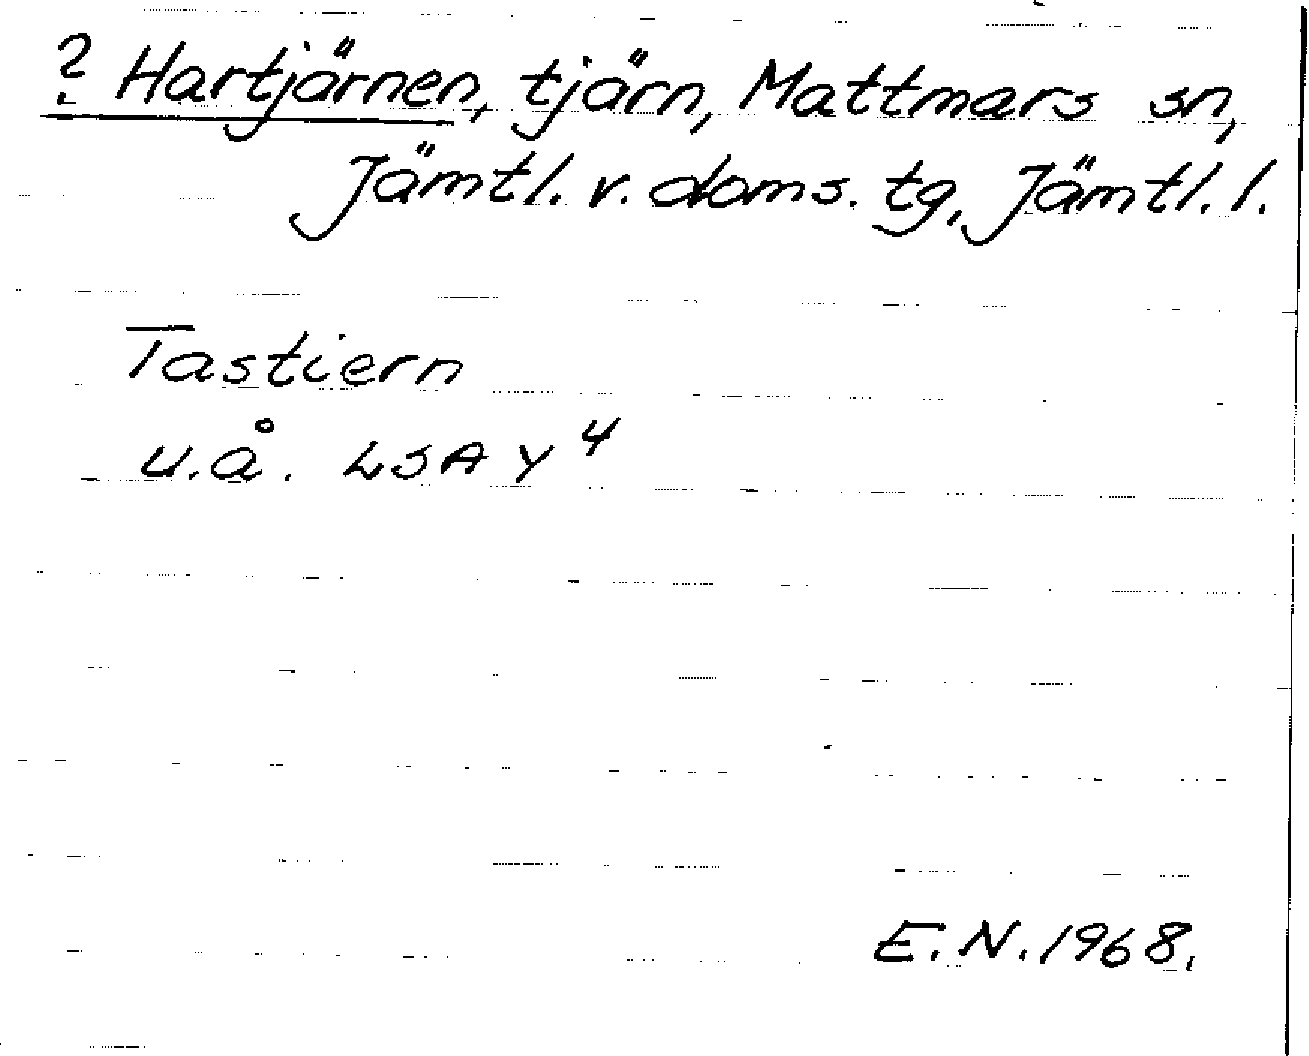 ? Hartjärnen, tjärn, Mattmars sn,
Jämtl. v. doms. tg, Jämtl. l.
Tastiern
u.å. LSA Y 4
E.N. 1968.